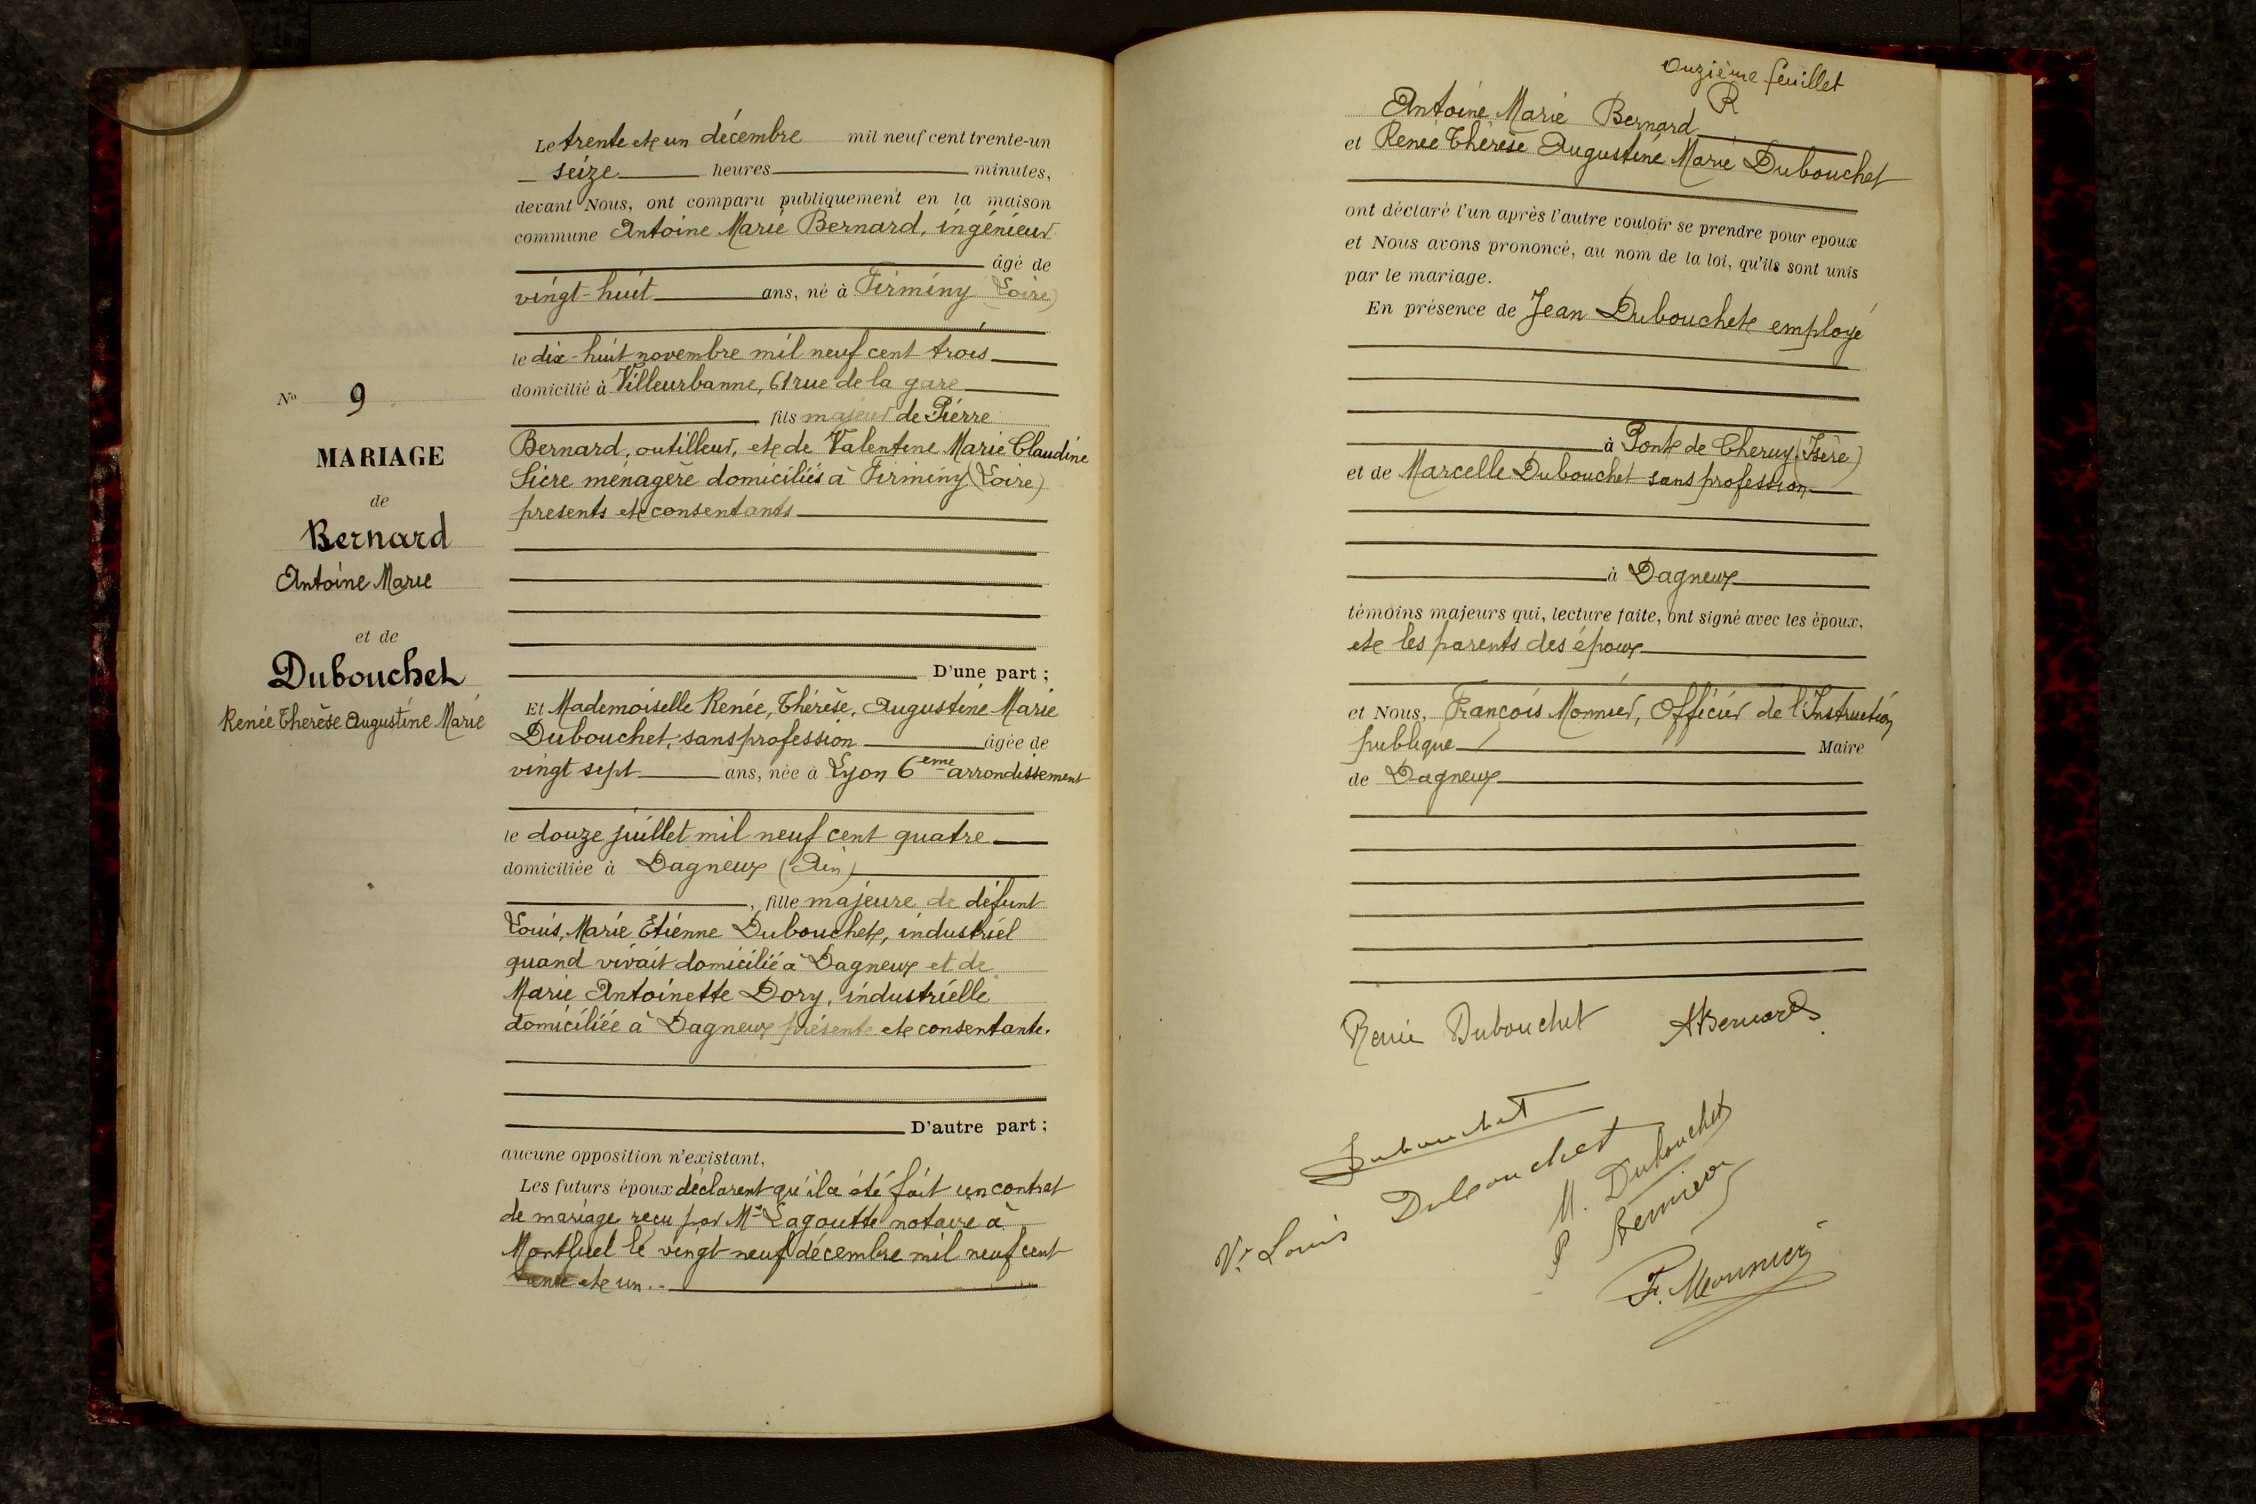 N° 9
MARIAGE
de
Bernard
Antoine Marie
et de
Dubouchet
Renée Therèse Augustine Marie
Le trente et un décembre mil neuf cent trente-un
seize heures minutes,
devant Nous, ont comparu publiquement en la maison
commune Antoine Marie Bernard, ingénieur
âgé de
vingt-huit ans, né à Firminy (Loire)
le dix-huit novembre mil neuf cent trois
domicilié à Villeurbanne, 61 rue de la gare
fils majeur de Pierre
Bernard, outilleur, et de Valentine Marie Claudine
Sicre ménagère domiciliés à Firminy (Loire)
presents et consentants
D'une part ;
Et Mademoiselle Renée, Thérèse, Augustine Marie
Dubouchet, sans profession âgée de
vingt sept ans, née à Lyon 6eme arrondissement
le douze juillet mil neuf cent quatre
domiciliée à Dagneux (Ain)
, fille majeure de défunt
Louis, Marie Etienne Dubouchet, industriel
quand vivait domicilié à Dagneux et de
Marie Antoinette Dory, industrielle
domiciliée à Dagneux présente et consentante.
D'autre part ;
aucune opposition n'existant,
Les futurs époux déclarent qu'il a été fait un contrat
de mariage reçu par Me Lagoutte notaire à
Montluel le vingt neuf décembre mil neuf cent
trente et un.-
onzième feuillet
R
Antoine Marie Bernard
et Renée Thérèse Augustine Marie Dubouchet
ont déclaré l'un après l'autre vouloir se prendre pour epoux
et Nous avons prononcé, au nom de la loi, qu'ils sont unis
par le mariage.
En présence de Jean Dubouchet employé
à Pont de Cheruy (Isère)
et de Marcelle Dubouchet sans profession
à Dagneux
témoins majeurs qui, lecture faite, ont signé avec les époux,
et les parents des époux
et Nous, François Monnier, Officier de l'Instruction
publique Maire
de Dagneux
Renée Dubouchet ABernard
Dubouchet
Vve Louis Dubouchet
M. Dubouchet
P Bernard
F. Monnier